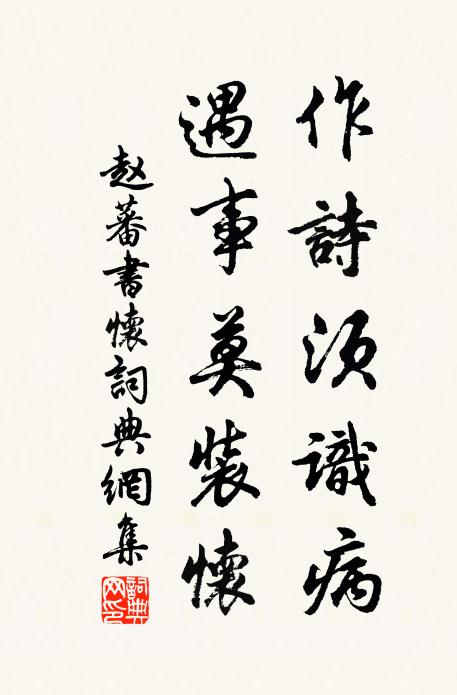 作詩須識病
遇事莫裝懷
赵蕃書懷詞典網集
詞典网印